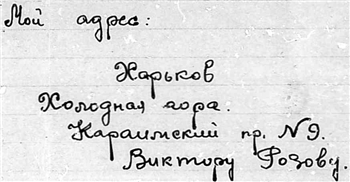 Мой адрес:
Харьков
Холодная гора.
Караимский пр. N 9.
Виктору Розову.